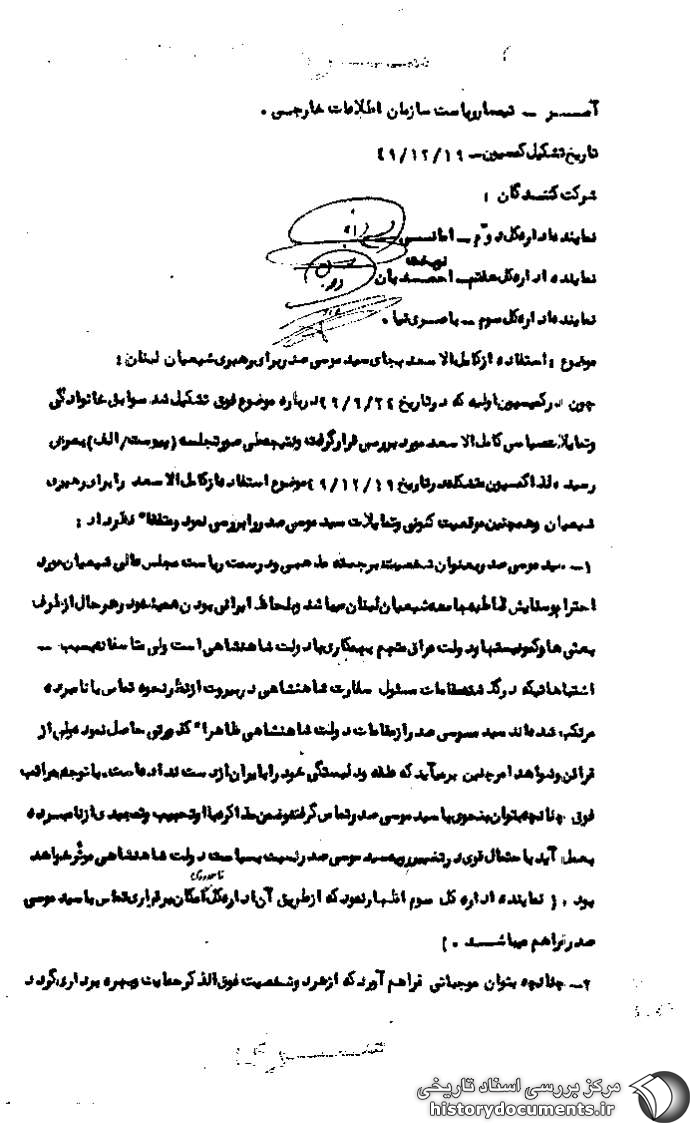 آمر — تیمسار ریاست سازمان اطلاعات خارجی .
تاریخ تشکیل کمیسیون — ۴۹/۱۲/۱۹
شرکت کنندگان :
نماینده اداره کل دوم —
نماینده اداره کل هفتم — احمدیان
نماینده اداره کل سوم — یاصری نیا .
موضوع : استفاده از کامل الاسعد بجای سید موسی صدر برای رهبری شیعیان لبنان :
چون در کمیسیون اولیه که در تاریخ درباره موضوع فوق تشکیل شد سوابق خانوادگی
و تمایلات سیاسی کامل الاسعد مورد بررسی قرار گرفت و نتیجه طی صورتجلسه (پیوست/الف) بعرض
رسید ه لذا کمیسیون متشکله در تاریخ ۴۹/۱۲/۱۹ موضوع استفاده از کامل الاسعد را برای رهبری
شیعیان و همچنین موقعیت کنونی و تمایلات سید موسی صدر را بررسی نمود و متفقا" نظر داد :
۱— سید موسی صدر بعنوان شخصیت برجسته مذهبی و در سمت ریاست مجلس عالی شیعیان مورد
احترام و ستایش قاطبه جامعه شیعیان لبنان میباشد و بلحاظ ایرانی بودن همیشه و در هر حال از طرف
بعثی ها و کمونیستها و دولت عراق متهم بهمکاری با دولت شاهنشاهی است ولی متاسفانه بسبب —
اشتباهاتیکه در گذشته مقامات مسئول سفارت شاهنشاهی در بیروت از نظر نحوه تماس با نامبرده
مرتکب شده اند سید موسی صدر از مقامات دولت شاهنشاهی ظاهرا" کدورتی حاصل نموده ولی از
قرائن و شواهد امر چنین برمیآید که علاقه و دلبستگی خود را با ایران از دست نداده است . با توجه بمراتب
فوق چنانچه بتوان بنحوی با سید موسی صدر تماس گرفته و ضمن مذاکره با او تحبیب و تمجیدی از نامبرده
بعمل آید با احتمال قوی در تغییر رویه سید موسی صدر نسبت بسیاست دولت شاهنشاهی موثر خواهد
بود . ( نماینده اداره کل سوم اظهار نمود که از طریق آن اداره کل تا حدودی امکان برقراری تماس با سید موسی
صدر فراهم میباشد . )
۲— چنانچه بتوان موجباتی فراهم آورد که از هر دو شخصیت فوق الذکر حمایت و بهره برداری گردد
مرکز بررسی اسناد تاریخی
historydocuments.ir